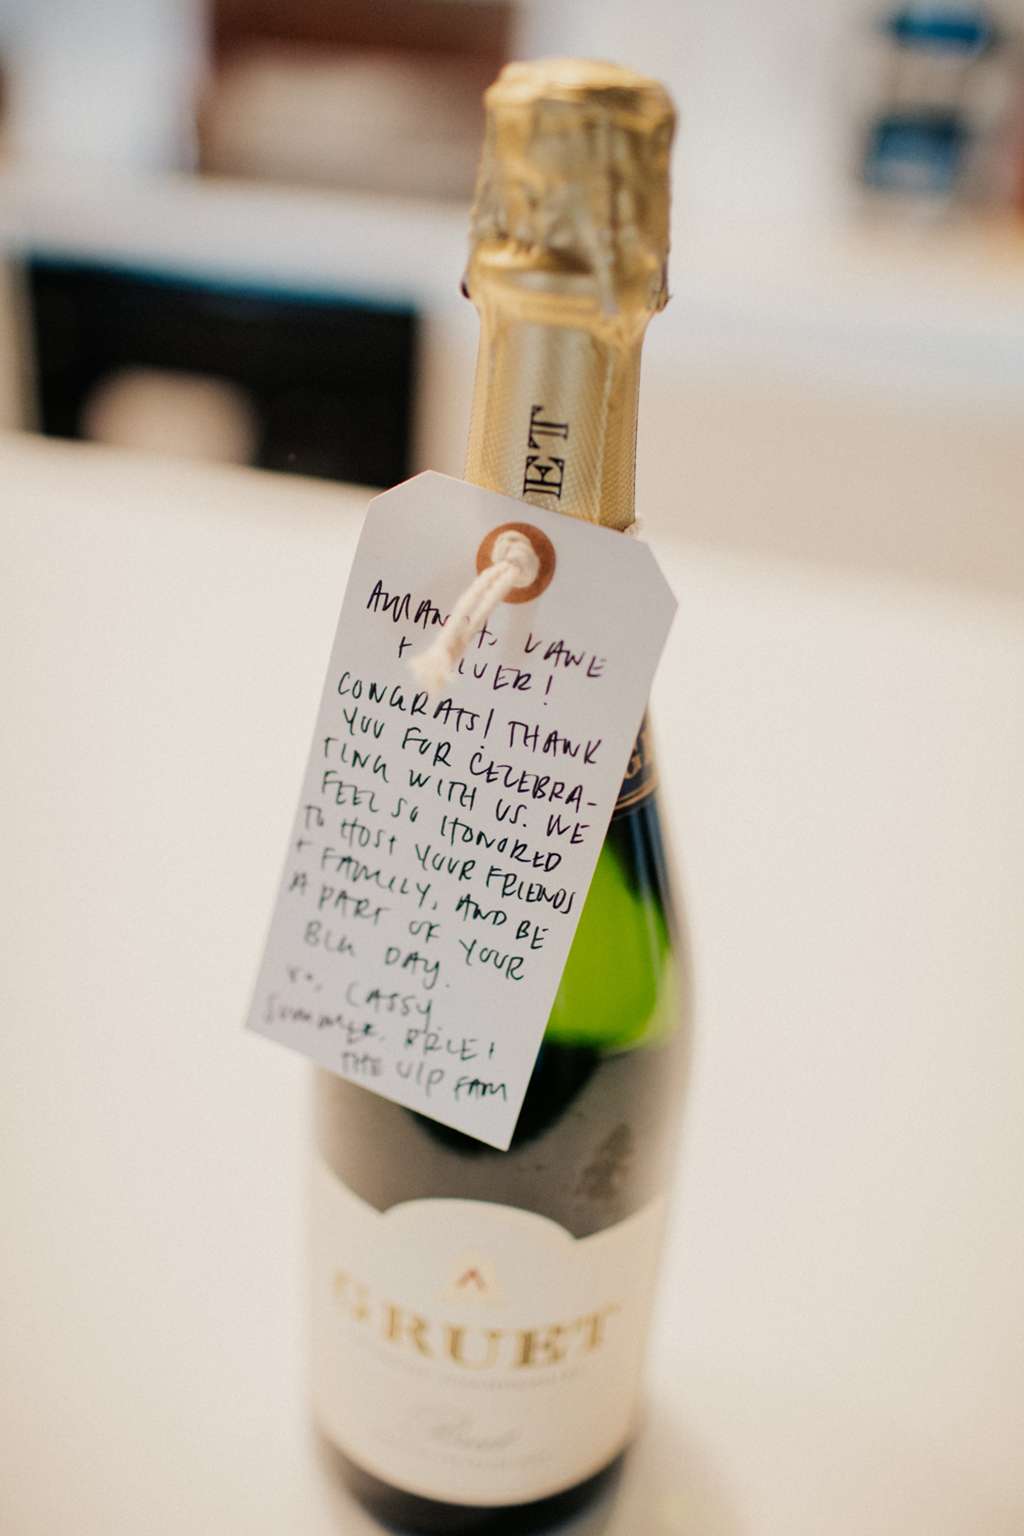 ET
+
CONGRATS! THANK
YOU FOR CELEBRA-
TING WITH US. WE
FEEL SO HONORED
TO HOST YOUR FRIENDS
+ FAMILY, AND BE
A PART OF YOUR
BIG DAY.
XO, CASSY,
SUMMER, BRIE +
THE VIP FAM
GRUET
Brut